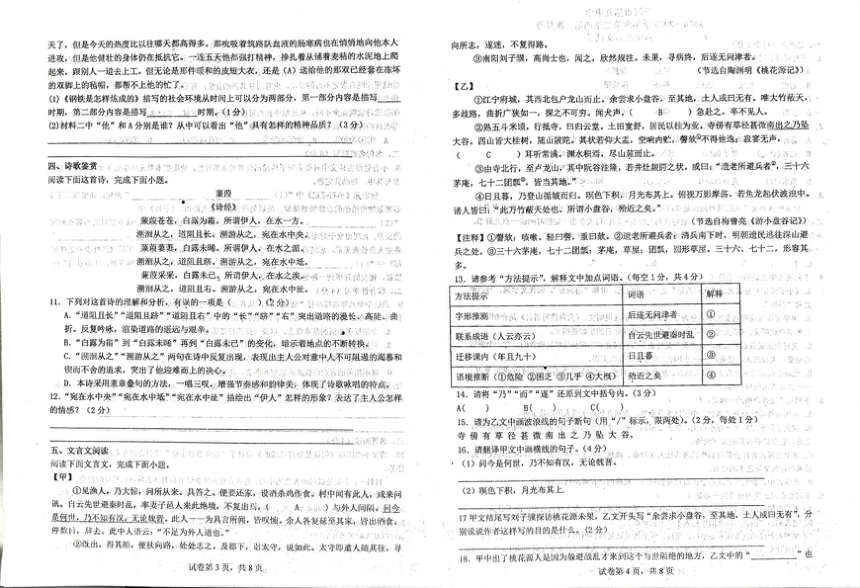 天了，但是今天的热度比以往哪天都高得多。那吮吸着筑路队血液的肠寒病也在悄悄地向他本人
进攻，但是他健壮的身体仍在抵抗它，一连五天他都强打精神，挣扎着从铺着麦秸的水泥地上爬
起来，跟别人一道去上工。但无论是那件暖和的皮短大衣，还是（A）送给他的那双已经套在冻坏
的双脚上的毡帽，都帮不上他的忙了。
(1)《钢铁是怎样炼成的》描写的社会环境从时间上可以分为两部分，第一部分内容是描写
时期，第二部分内容是描写 时期。(1 分)
(2)材料二中“他”和 A 分别是谁？从中可以看出“他”具有怎样的精神品质？（3 分）
四、诗歌鉴赏
阅读下面这首诗，完成下面小题。
蒹葭
《诗经》
蒹葭苍苍，白露为霜。所谓伊人，在水一方。
溯洄从之，道阻且长。溯游从之，宛在水中央。
蒹葭萋萋，白露未晞。所谓伊人，在水之湄。
溯洄从之，道阻且跻。溯游从之，宛在水中坻。
蒹葭采采，白露未已。所谓伊人，在水之涘。
溯洄从之，道阻且右。溯游从之，宛在水中沚。
11. 下列对这首诗的理解和分析，有误的一项是（ ）（2 分）
A. “道阻且长”“道阻且跻”“道阻且右”中的“长”“跻”“右”突出道路的漫长、高陡、曲
折。反复吟咏，渲染道路的遥远与艰辛。
B. “白露为霜”到“白露未晞”再到“白露未已”的变化，暗示着地点的不断转换。
C. “溯洄从之”“溯游从之”两句在诗中反复出现，表现出主人公对意中人不可阻遏的渴慕和
锲而不舍的追求，突出了他迎难而上的决心。
D. 本诗采用重章叠句的方法，一唱三叹，增强节奏感和韵律美，体现了诗歌咏唱的特点。
12. “宛在水中央”“宛在水中坻”“宛在水中沚”描绘出“伊人”怎样的形象？表达了主人公怎样
的情感？（2 分）
五、文言文阅读
阅读下面文言文，完成下面小题。
【甲】
①见渔人，乃大惊，问所从来。具答之。便要还家，设酒杀鸡作食。村中闻有此人，咸来问
讯。自云先世避秦时乱，率妻子邑人来此绝境，不复出焉，（ A ）与外人间隔。问今
是何世，乃不知有汉，无论魏晋。此人一一为具言所闻，皆叹惋。余人各复延至其家，皆出酒食。
停数日，辞去。此中人语云：“不足为外人道也。”
②既出，得其船，便扶向路，处处志之。及郡下，诣太守，说如此。太守即遣人随其往，寻
试卷第 3 页，共 8 页
向所志，遂迷，不复得路。
③南阳刘子骥，高尚士也，闻之，欣然规往。未果，寻病终，后遂无问津者。
（节选自陶渊明《桃花源记》）
【乙】
①江宁府城，其西北包卢龙山而止。余尝求小盘谷，至其地，土人或曰无有。唯大竹蔽天，
多歧路，曲折广狭如一，探之不可穷。闻犬声，（ B ）急赴之，卒不见人。
②熟五斗米顷，行抵寺，曰归云堂。土田宽舒，居民以桂为业。寺傍有草径甚微南出之乃坠
大谷。四山皆大桂树，随山陂陀。其状若仰大盂，空响内贮，謦欬①不得他逸；寂寥无声，
（ C ）耳听常满。渊水积焉，尽山麓而止。
③由寺北行，至卢龙山，其中阬谷洼隆，若井灶龈腭之状。或曰：“遗老所避兵者②，三十六
茅庵，七十二团瓢③，皆当其地。”
④日且暮，乃登山循城而归。暝色下积，月光布其上。俯视万影摩荡，若鱼龙起伏波浪中。
诸人皆曰：“此万竹蔽天处也。所谓小盘谷，殆近之矣。”
（节选自梅曾亮《游小盘谷记》）
【注释】①謦欬：咳嗽。轻曰謦，重曰欬。②遗老所避兵者：清兵南下时，明朝遗民逃往深山避
兵之处。③三十六茅庵，七十二团瓢：茅庵，草屋；团瓢，圆形草屋。三十六、七十二，形容其
多。
13. 请参考“方法提示”，解释文中加点词语。（每空 1 分，共 4 分）
方法提示 词语 解释
字形推测 后遂无问津者 ①
联系成语（人云亦云） 自云先世避秦时乱 ②
迁移课内（年且九十） 日且暮 ③
语境推断（①危险 ②困乏 ③几乎 ④大概） 殆近之矣 ④
14. 请将“乃”“而”“遂”还原到文中括号内。（3 分）
A( ) B( ) C( )
15. 请为乙文中画波浪线的句子断句（用“/”标示，限两处）。（2 分，每处 1 分）
寺 傍 有 草 径 甚 微 南 出 之 乃 坠 大 谷。
16. 请翻译甲文中画横线的句子。（4 分）
（1）问今是何世，乃不知有汉，无论魏晋。
（2）暝色下积，月光布其上。
17 甲文结尾写刘子骥探访桃花源未果，乙文开头写“余尝求小盘谷，至其地，土人或曰无有”，分
别说说作者这样写的目的是什么。（2 分）
18. 甲中出了桃花源人是因为躲避战乱才来到这个与世隔绝的地方，乙文中的“ ”也
试卷第 4 页，共 8 页